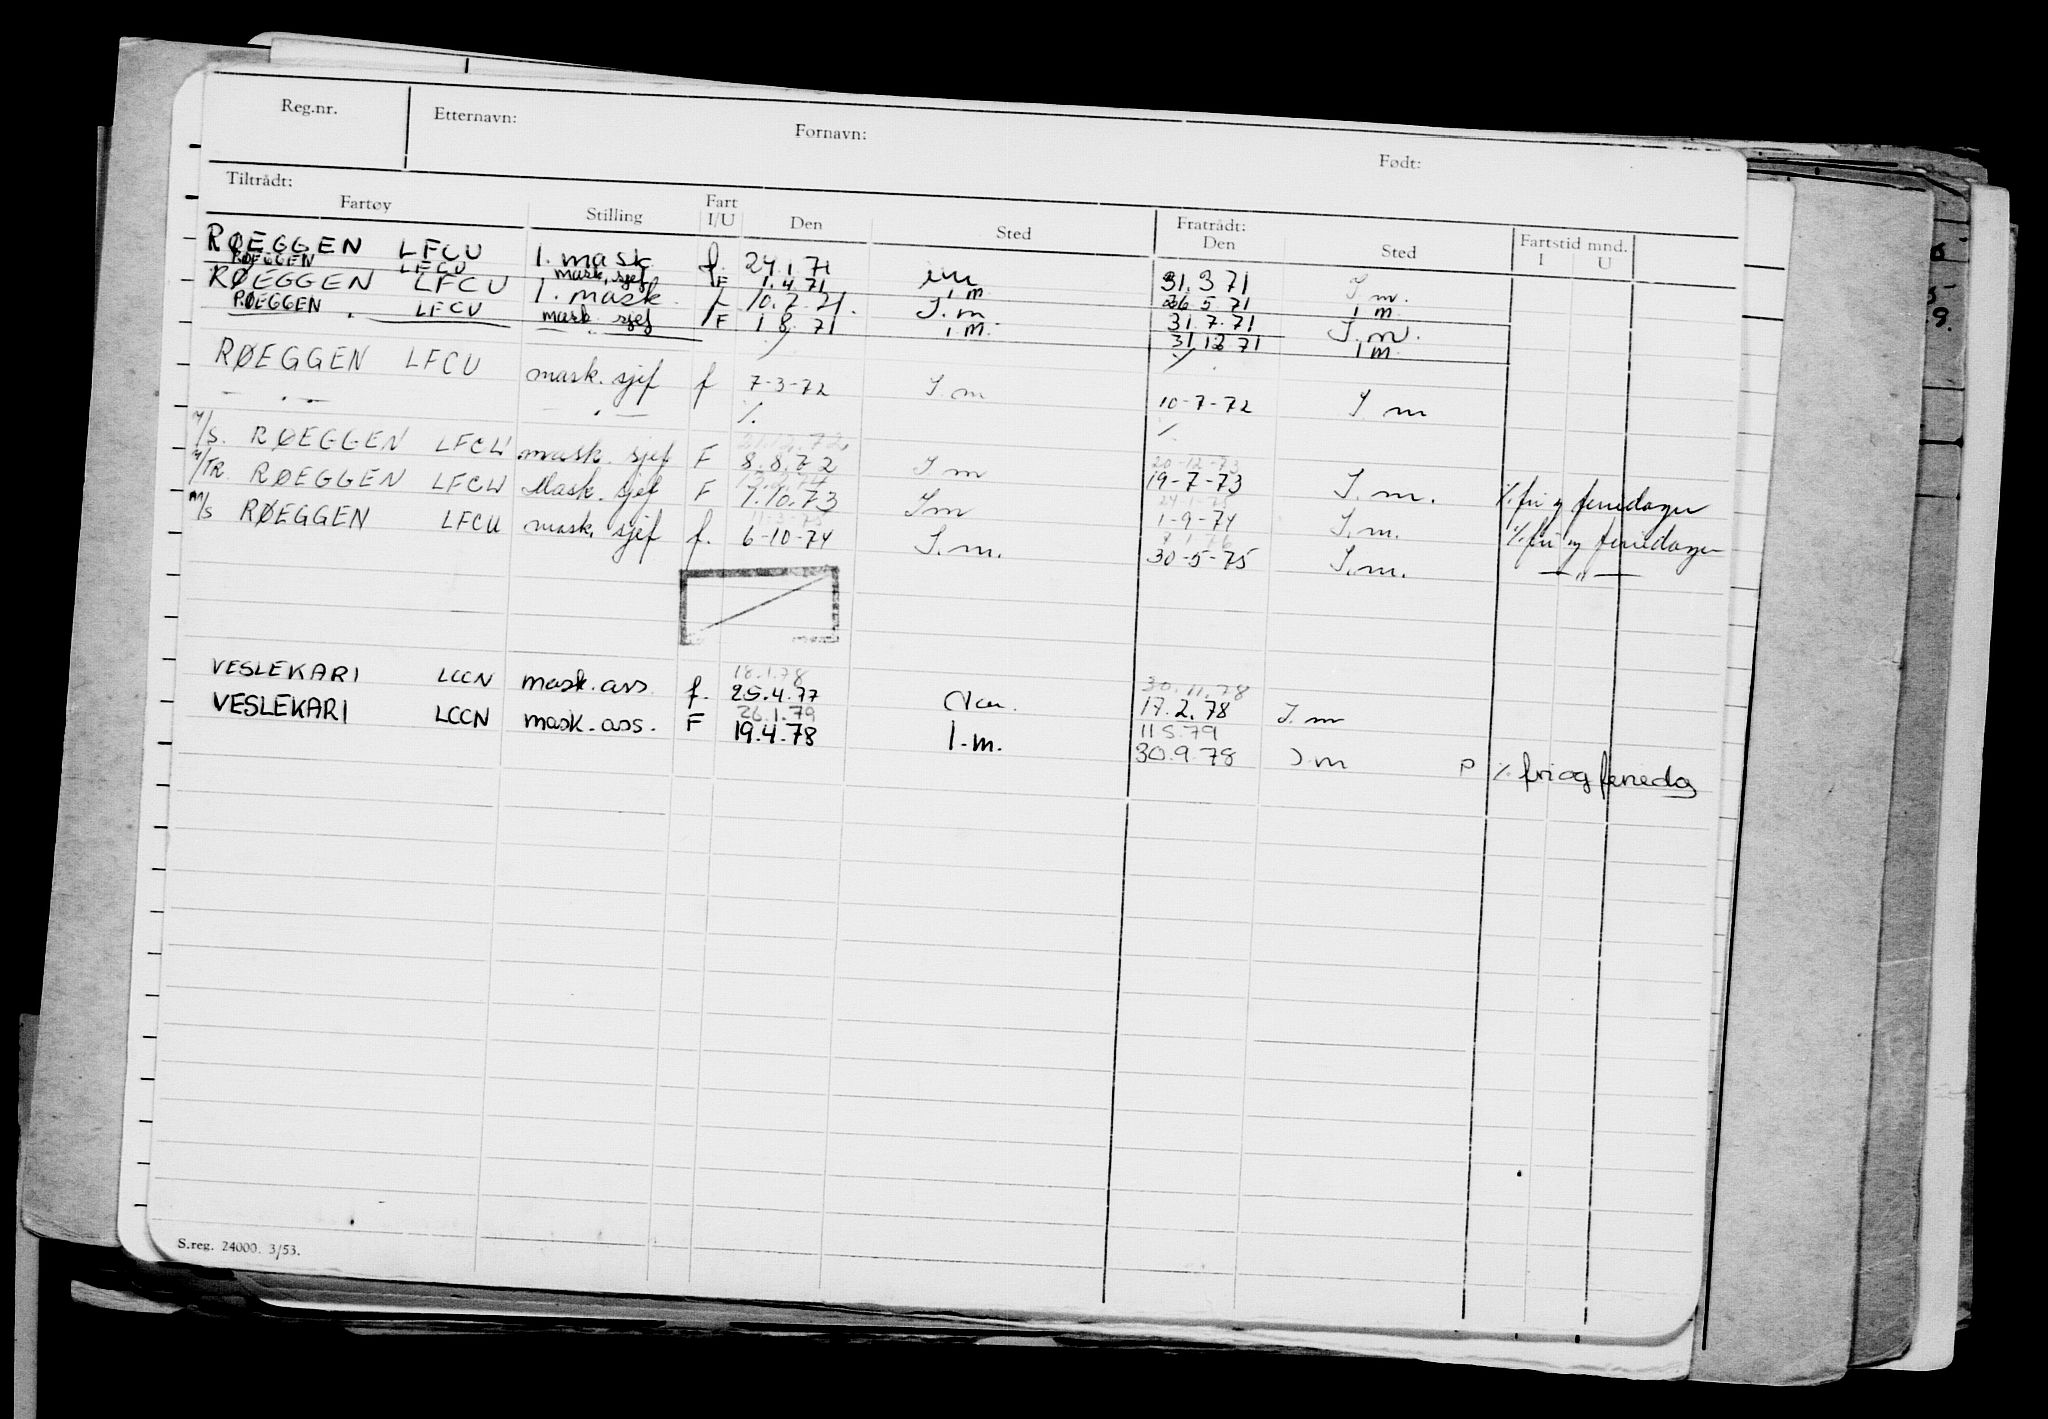 Reg.nr. Etternavn: Fornavn: Født:
Tiltrådt: Fratrådt:
Fartøy Stilling Fart I/U Den Sted Den Sted Fartstid mnd. I U
RØEGGEN LFCU 1. mask f. 24.1.71 31.3.71 I.m.
RØEGGEN LFCU mask.sjef F 1.4.71 i m 26.5.71 i m
RØEGGEN LFCU 1. mask. f 10.7.71. I.m 31.7.71 I.m.
RØEGGEN LFCU mask sjef F 1 8. 71 i m. 31 12 71 i m
RØEGGEN LFCU mask. sjef f 7-3-72 I.m 10-7-72 I m
— " — — " — ٪. ٪.
M/S. RØEGGEN LFCU mask. sjef F 8.8.72 I m 20-12-73 19-7-73 I.m. ٪. fri og feriedager
M/TR. RØEGGEN LFCU Mask. sjef F 7.10.73 I m 1-9-74 I.m. ٪. fri og feriedager
M/S RØEGGEN LFCU mask. sjef f. 6-10-74 I.m. 30-5-75 I.m. — " —
18.1.78 30.11.78
VESLEKARI LCCN mask.ass. f. 25.4.77 17.2.78 I.m
26.1.79 11.5.79
VESLEKARI LCCN mask.ass. F 19.4.78 I.m. 30.9.78 I.m P ٪. fri og feriedag
S.reg. 24000. 3/53.